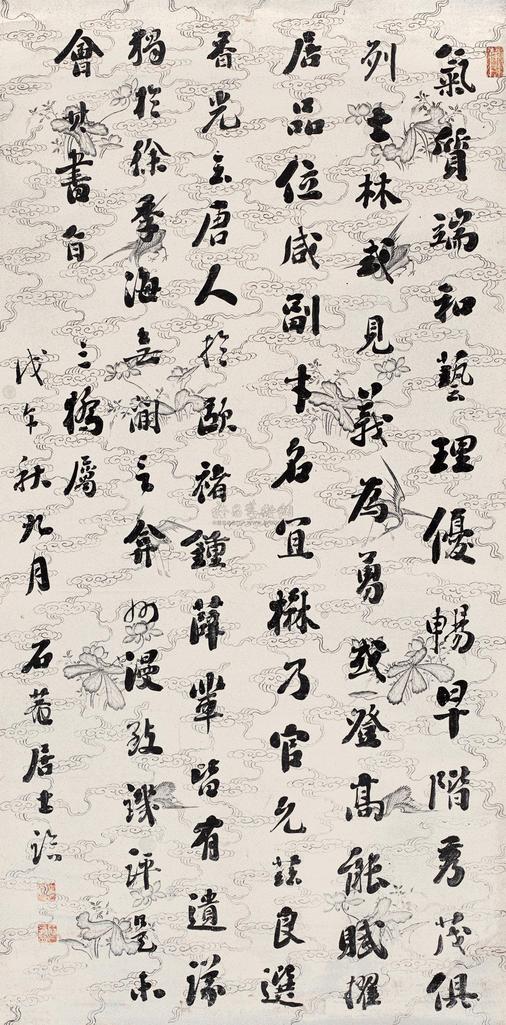 氣質端和藝理優暢早階秀茂俱
列士林或見義為勇或登高能賦擢
居品位咸副才名宜楙乃官允茲良選
香光言唐人於歐褚鍾薛輩皆有遺議
獨於徐季海無間言弇州漫致譏評是未
會其書旨
三橋屬
戊午秋九月石菴居士臨